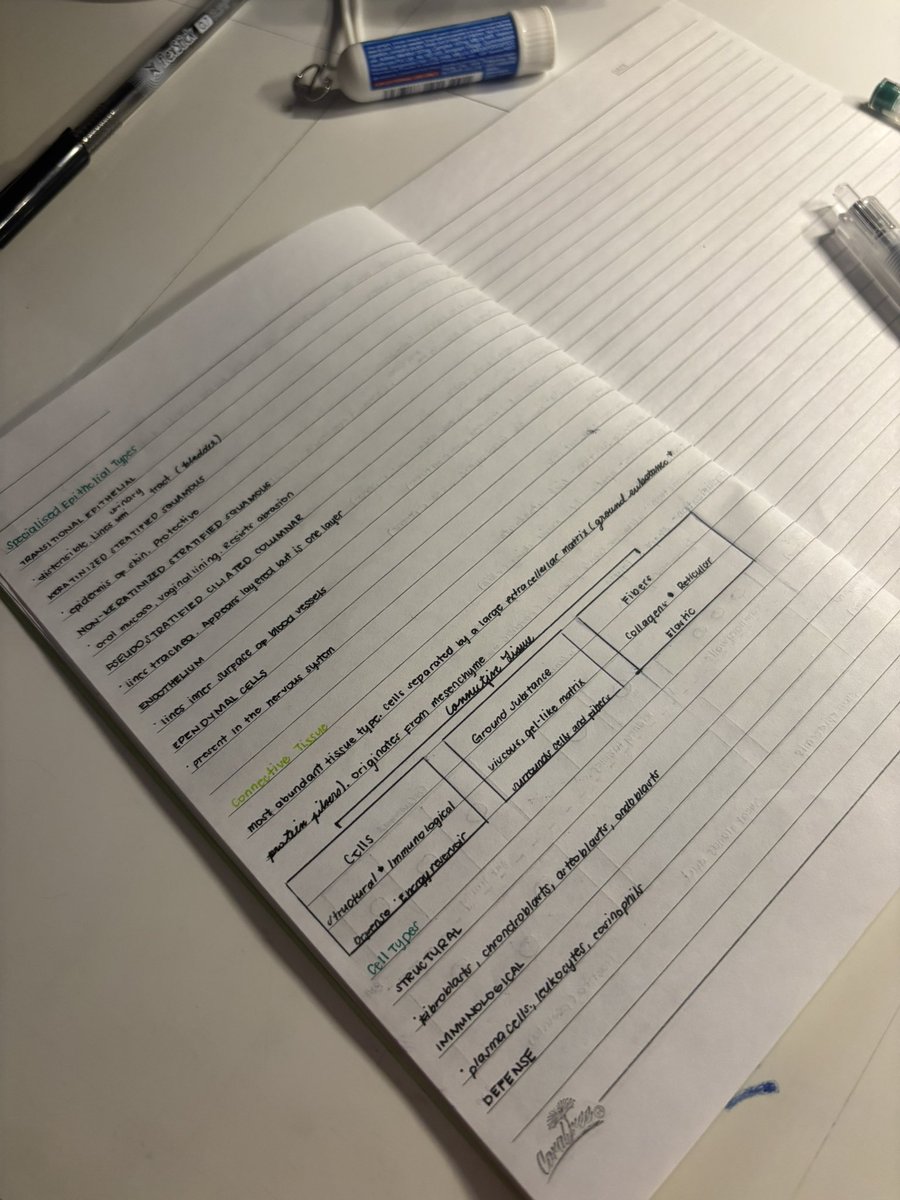 Specialised Epithelial Types
TRANSITIONAL EPITHELIAL
· distensible. Lines urinary tract (bladder)
KERATINIZED STRATIFIED SQUAMOUS
· epidermis of skin. Protective
NON-KERATINIZED STRATIFIED SQUAMOUS
· oral mucosa, vaginal lining. Resists abrasion
PSEUDOSTRATIFIED CILIATED COLUMNAR
· lines trachea. Appears layered but is one layer
ENDOTHELIUM
· lines inner surface of blood vessels
EPENDYMAL CELLS
· present in the nervous system
Connective Tissue
most abundant tissue type. cells separated by a large extracellular matrix (ground substance +
protein fibers). originates from mesenchyme
Connective Tissue
Cells
structural • Immunological
Defense · Energy reservoir
Ground substance
viscous, gel-like matrix
surrounds cells and fibers
Fibers
Collagen • Reticular
Elastic
Cell Types
STRUCTURAL
· fibroblasts, chrondroblasts,
IMMUNOLOGICAL
· plasma cells, leukocytes, eosinophils
DEFENSE